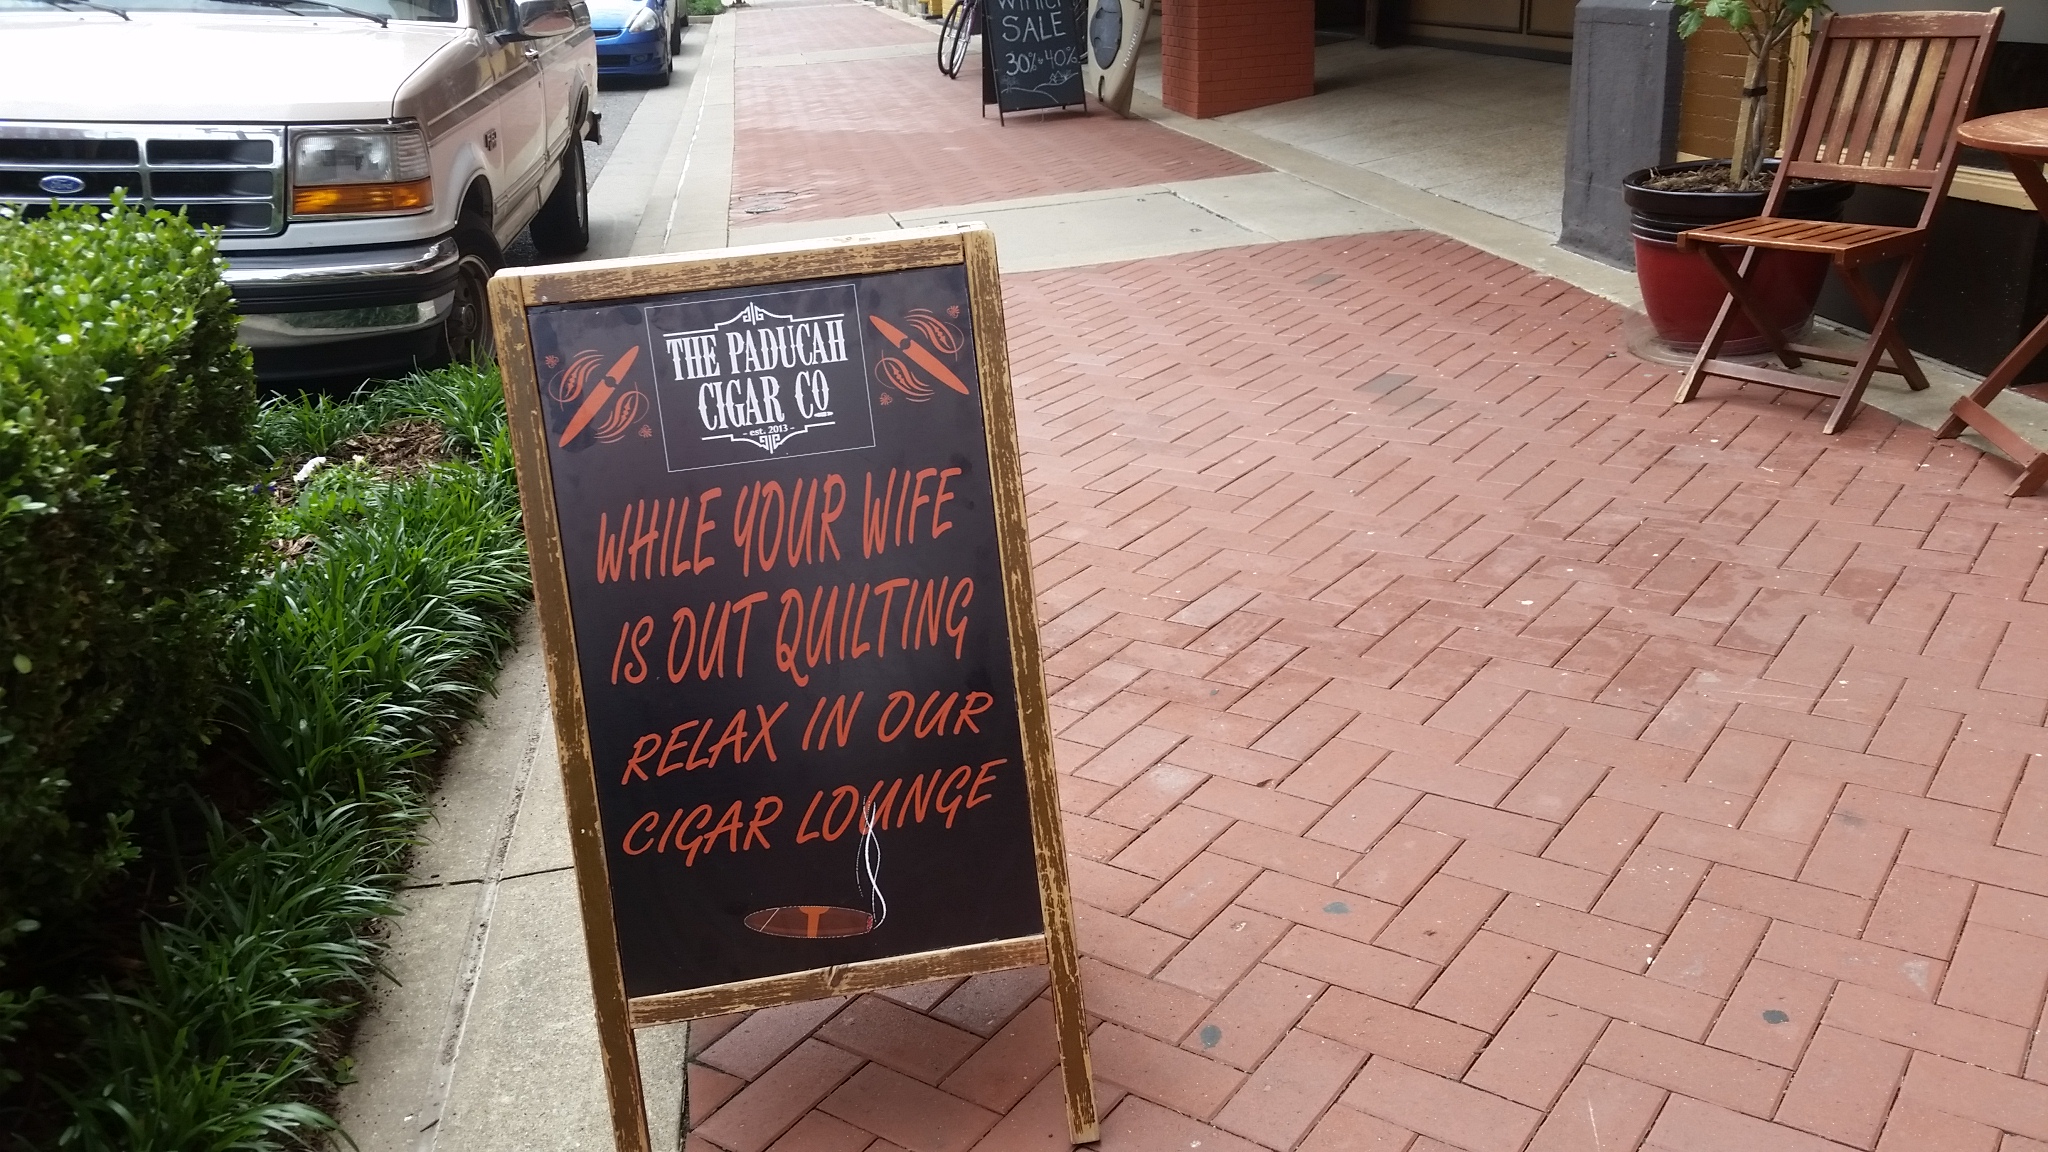 Winter
SALE
30% & 40%
Ford
THE PADUCAH
CIGAR CO
- est. 2013 -
WHILE YOUR WIFE
IS OUT QUILTING
RELAX IN OUR
CIGAR LOUNGE